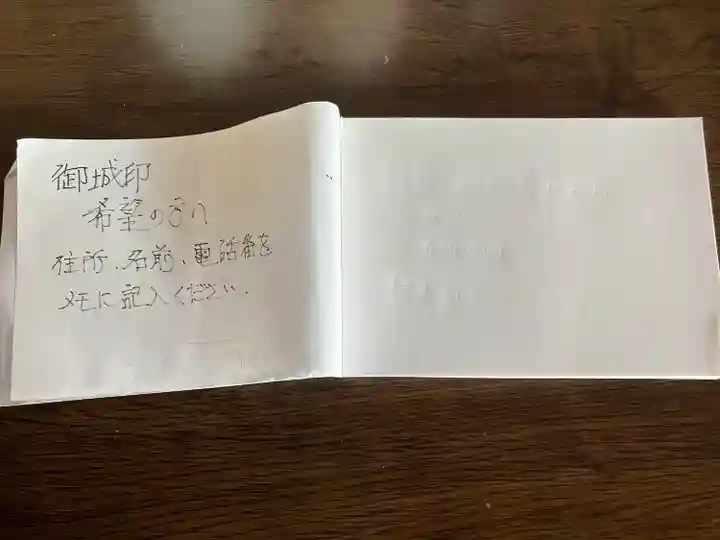 御城印
希望の方は
住所、名前、電話番を
メモに記入ください.